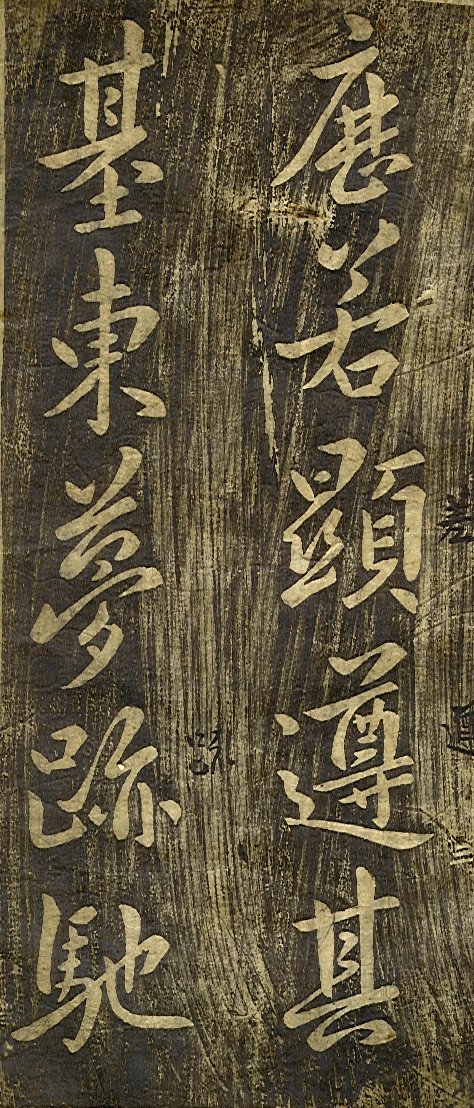 歷若顯遵其
基東夢跡馳